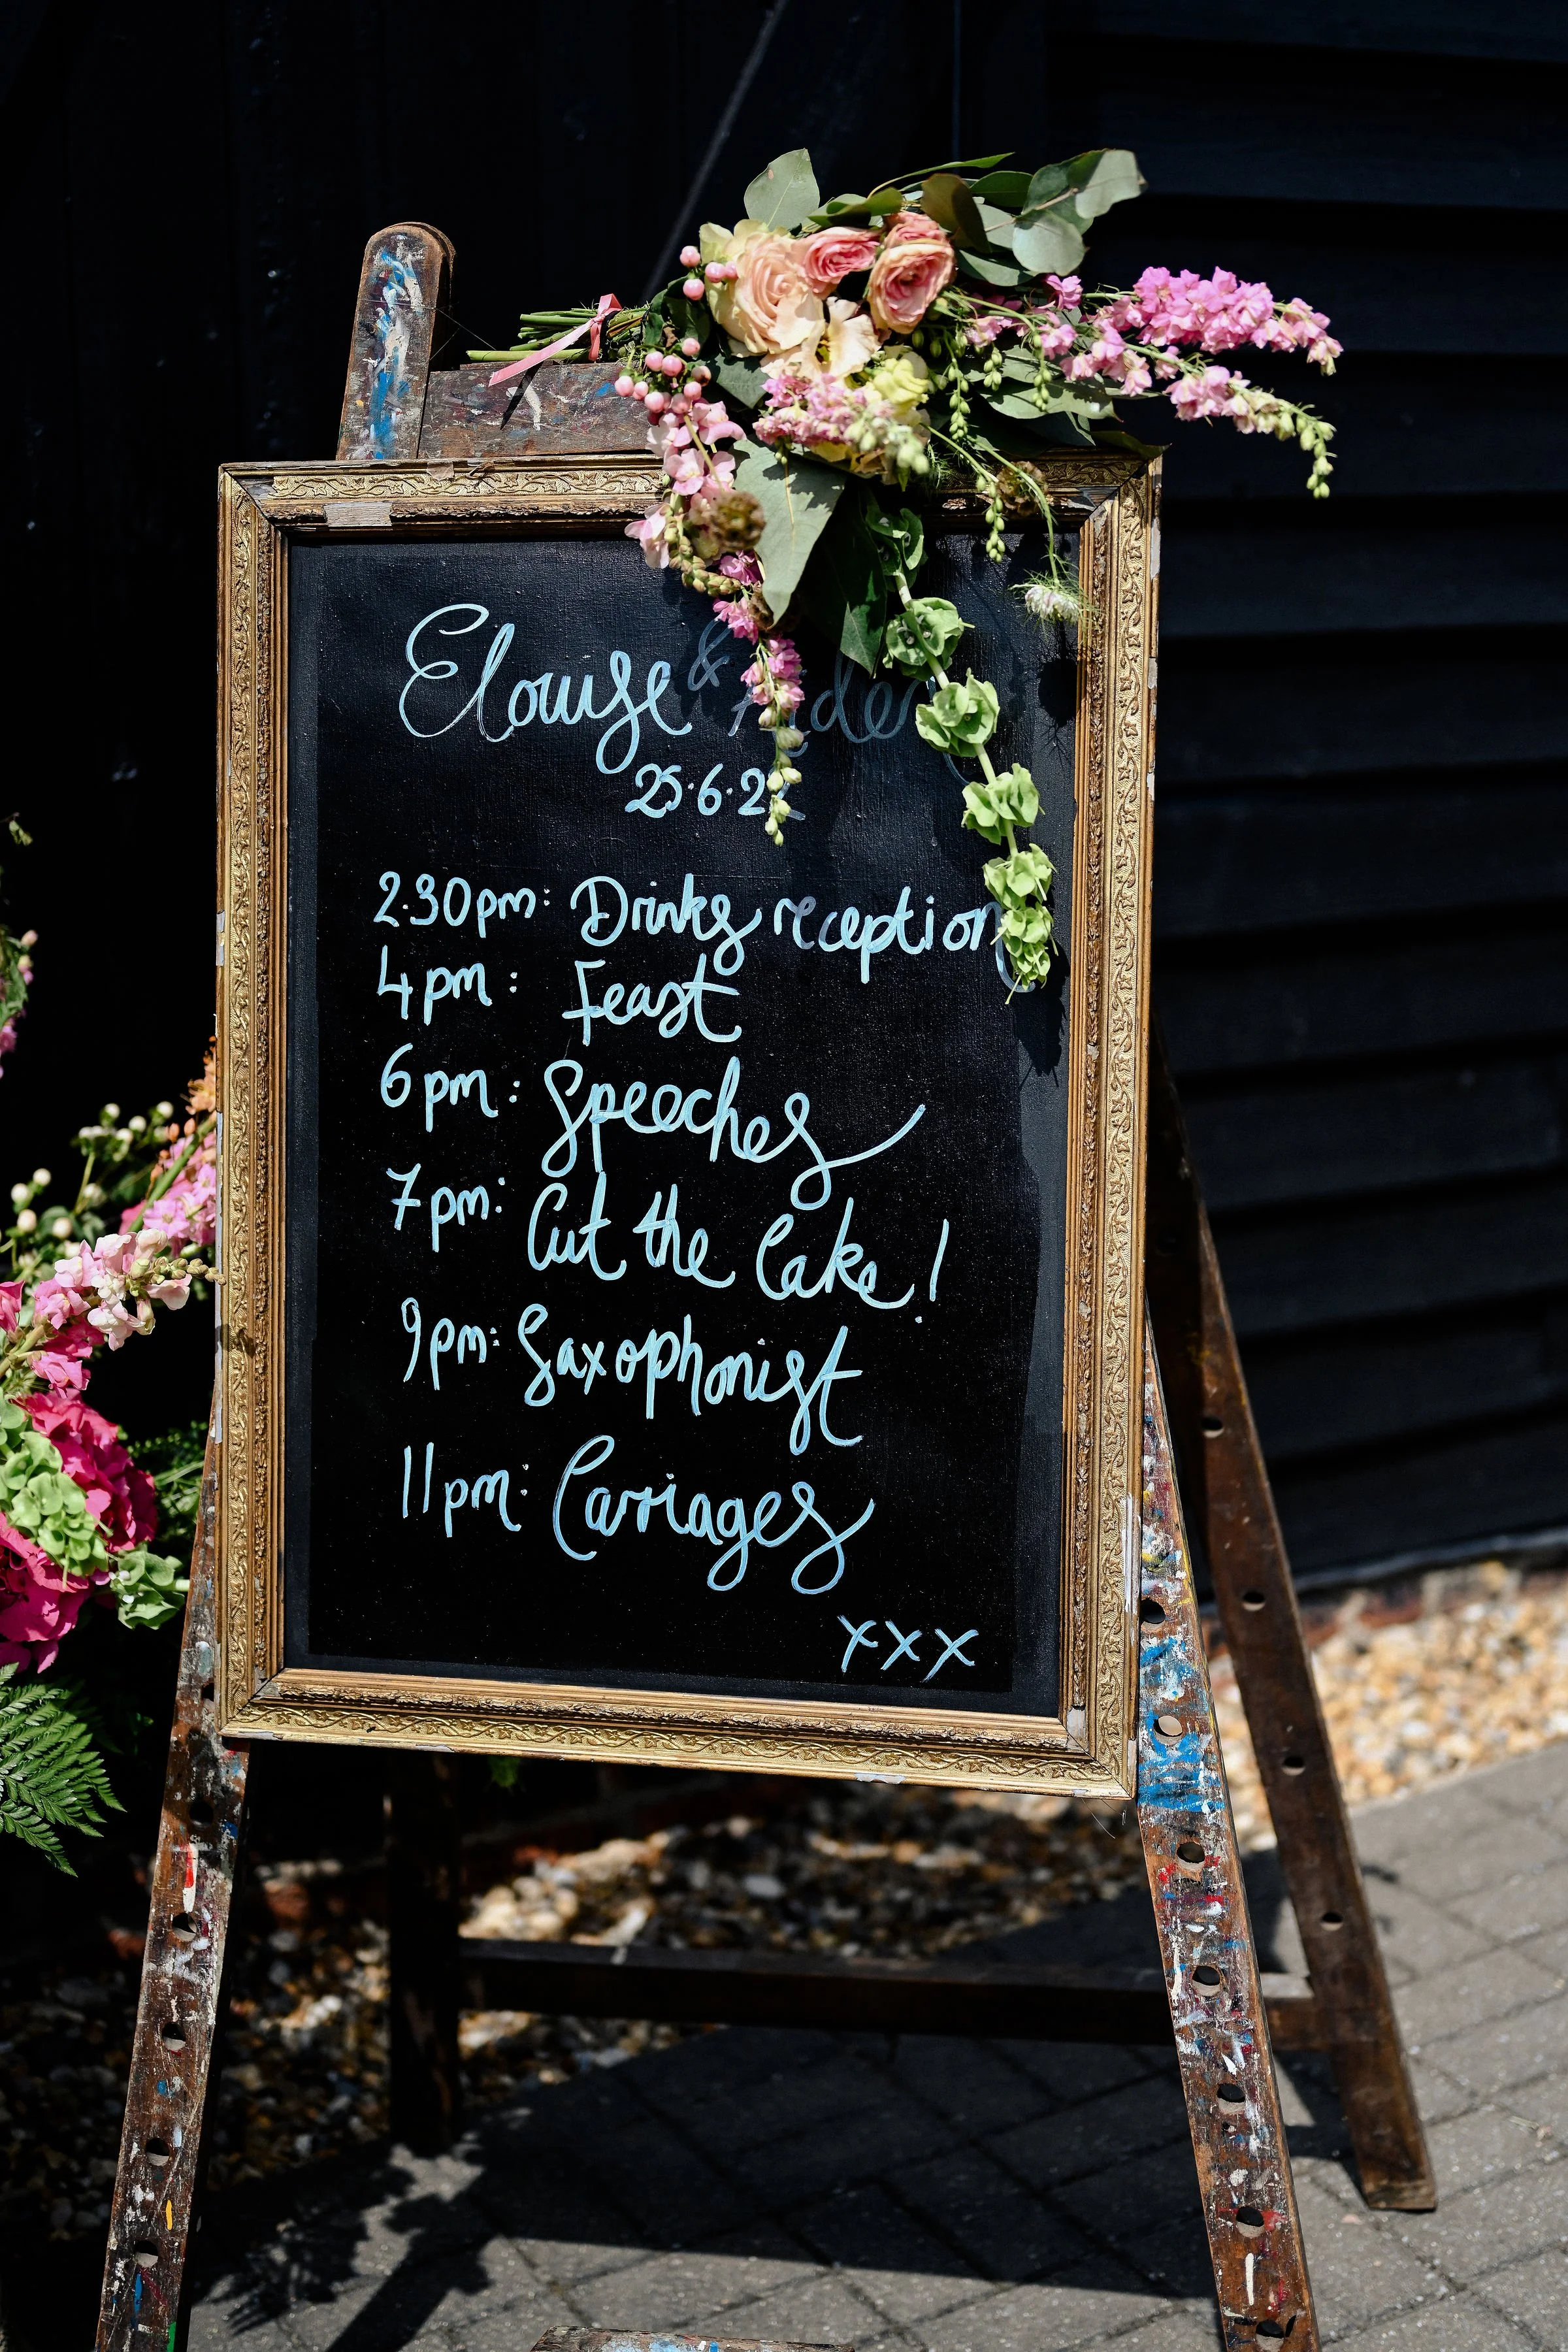 Elouise &
25.6.2
2.30pm: Drinks reception
4pm: Feast
6pm: Speeches
7pm: Cut the Cake!
9pm: Saxophonist
11pm: Carriages
xxx